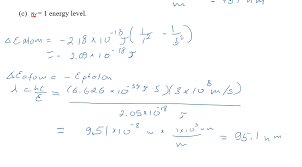 (c) n_f = 1 energy level.
ΔE atom = -2.18 × 10^-18 J (1/1² - 1/6²)
= -2.09 × 10^-18 J
ΔE atom = -E photon
λ = hc/E = (6.626 × 10^-34 J·S)(3 × 10^8 m/s) / 2.05 × 10^-18 J
= 9.51 × 10^-8 m × 1×10^9 nm / m = 95.1 nm